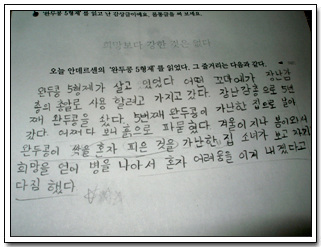 '완두콩 5형제'를 읽고 난 감상글이에요. 물음을 보세요.
희망보다 강한 것은 없다
오늘 안데르센의 '완두콩 5형제'를 읽었다. 그 줄거리는 다음과 같다.
완두콩 5형제가 살고 있었다 어떤 꼬마애가 장난감
총의 총알로 사용 할려고 가지고 갔다. 장난감총으로 5번
째 완두콩을 쐈다. 5번째 완두콩이 가난한 집으로 날아
갔다. 어쩌다 보니 흙으로 파묻혔다 겨울이 지나 봄이와서
완두콩이 싹을 혼자 피운 것을 가난한 집 소녀가 보고 자기
희망을 얻어 병을 나아서 혼자 어려움을 이겨 내겠다고
다짐 했다